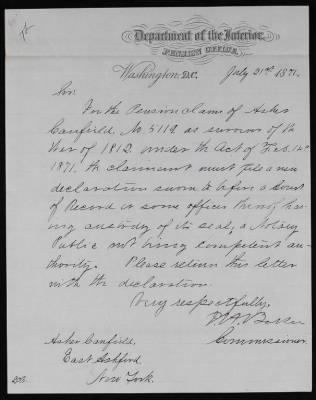 Department of the Interior,
PENSION OFFICE,
Washington, D.C. July 21st, 1871.
Sir:
For the Pension claim of Asher
Canfield, No. 5112 as survivor of the
War of 1812 under the Act of Feb. 14th
1871, the claimant must file a new
declaration sworn to before a Court
of Record or some officer thereof hav-
ing custody of its seal; a Notary
Public not being competent au-
thority. Please return this letter
with the declaration.
Very respectfully,
Baker
Commissioner.
Asher Canfield,
East Ashford,
New York.